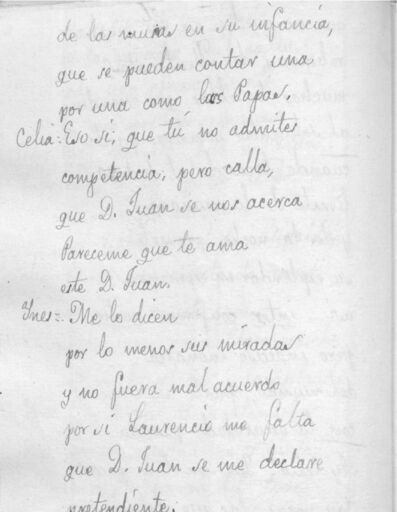 de las musas en su infancia,
que se pueden contar una
por una como las Papas.
Celia=Eso si, que tú no admites
competencia; pero calla,
que D. Juan se nos acerca
Pareceme que te ama
este D. Juan.
Ynes=. Me lo dicen
por lo menos sus miradas
y no fuera mal acuerdo
por si Laurencio me falta
que D. Juan se me declare
pretendiente.